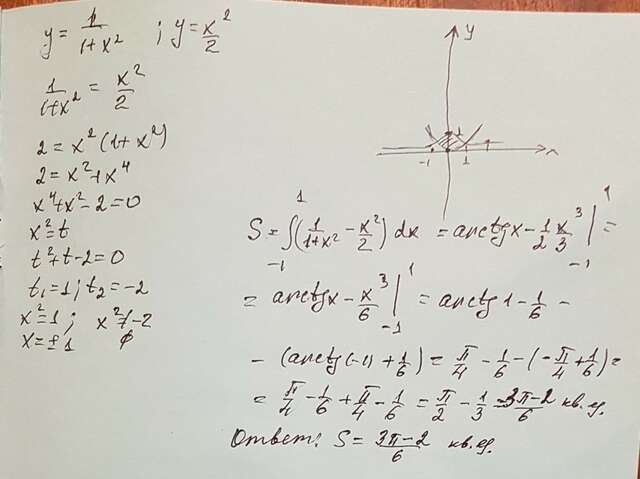 y = 1/(1+x²) ; y = x²/2
1/(1+x²) = x²/2
2 = x²(1+x²)
2 = x²+x⁴
x⁴+x²-2=0
x²=t
t²+t-2=0
t₁=1; t₂=-2
x²=1; x²≠-2
x=±1 ∅
y
1
-1 1 x
S = ∫₋₁¹ (1/(1+x²) - x²/2) dx = arctgx - 1/2 x³/3 |₋₁¹ =
= arctgx - x³/6 |₋₁¹ = arctg1 - 1/6 -
- (arctg(-1) + 1/6) = π/4 - 1/6 - (-π/4 + 1/6) =
= π/4 - 1/6 + π/4 - 1/6 = π/2 - 1/3 = (3π-2)/6 кв.ед.
Ответ: S = (3π-2)/6 кв.ед.